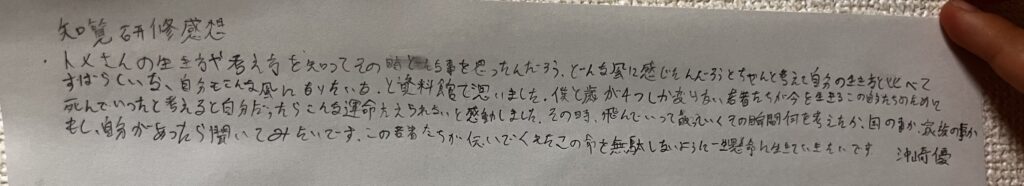 知覧研修感想
・トメさんの生き方や考え方を知ってその時どんな事を思ったんだろう、どんな風に感じたんだろうとちゃんと考えて自分の生き方と比べて
すばらしいな、自分もこんな風になりたいな、と資料館で思いました。僕と歳が4つしか変わらない若者たちが今を生きるこの自分たちのために
死んでいったと考えると自分だったらこんな運命たえられないと感動しました。その時、飛んでいって敵にいくその瞬間何を考えたか、国の事か、家族の事か
もし、自分があったら聞いてみたいです。この若者たちが伝いでくれたこの命を無駄しないように一生懸命に生きていきたいです 沖崎優